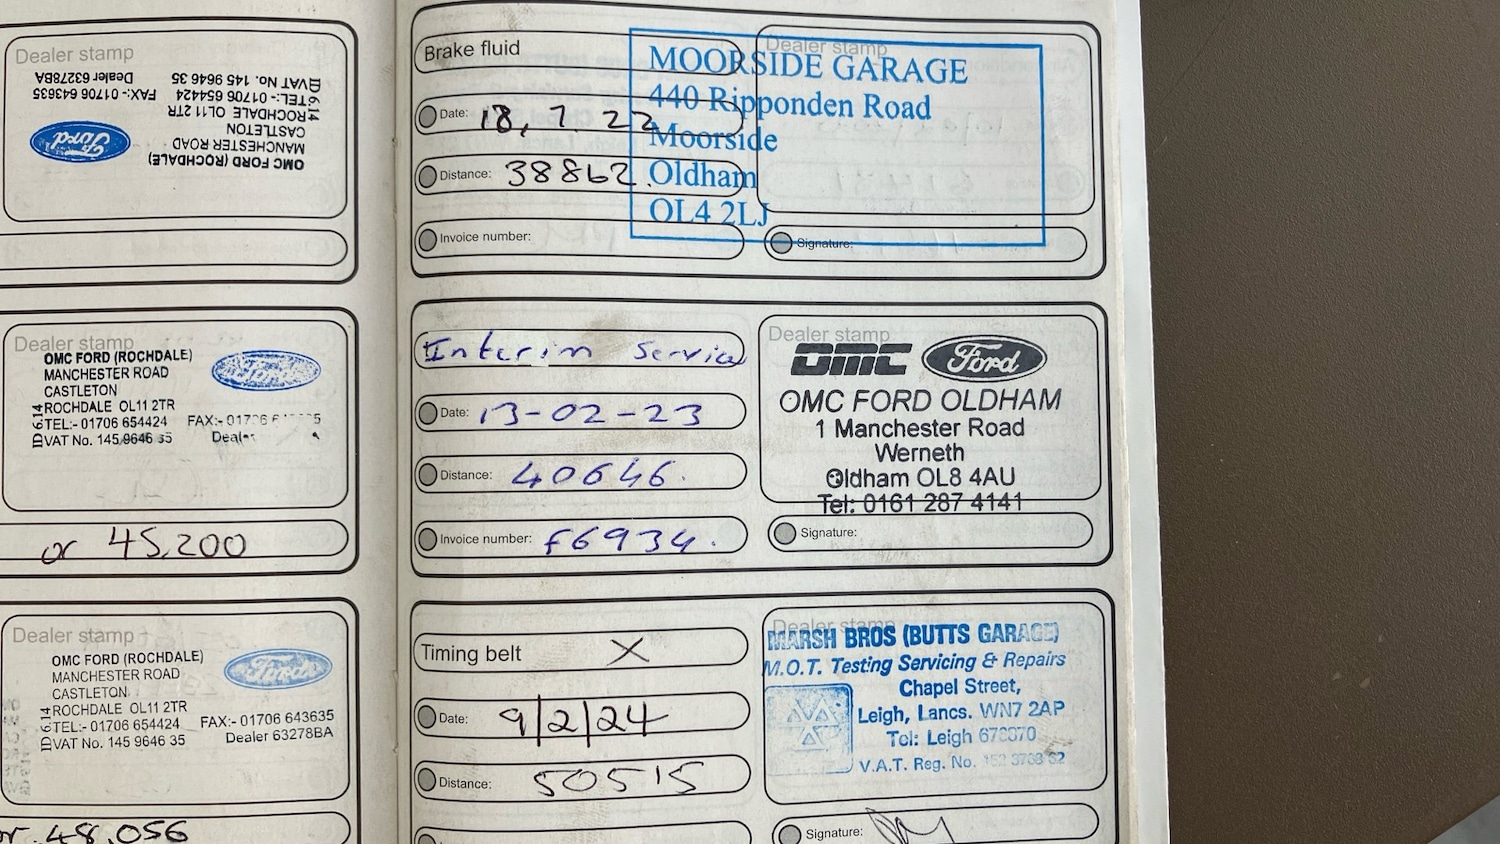 Dealer stamp
OMC FORD (ROCHDALE)
MANCHESTER ROAD
CASTLETON
ROCHDALE OL11 2TR
TEL:- 01706 654424 FAX:- 01706 643635
VAT No. 145 9646 35 Dealer 63278BA
ID 6.14
Ford
Dealer stamp
OMC FORD (ROCHDALE)
MANCHESTER ROAD
CASTLETON
ROCHDALE OL11 2TR
TEL:- 01706 654424 FAX:- 01706
VAT No. 145 9646 35
ID 6.14
Ford
or 45,200
Dealer stamp
OMC FORD (ROCHDALE)
MANCHESTER ROAD
CASTLETON
ROCHDALE OL11 2TR
TEL:- 01706 654424 FAX:- 01706 643635
VAT No. 145 9646 35 Dealer 63278BA
ID 6.14
Ford
or 48,056
Brake fluid
Date: 18, 7. 22
Distance: 38862.
Invoice number:
Dealer stamp
MOORSIDE GARAGE
440 Ripponden Road
Moorside
Oldham
OL4 2LJ
Signature:
Interim Service
Date: 13-02-23
Distance: 40646.
Invoice number: f6934.
Dealer stamp
OMC Ford
OMC FORD OLDHAM
1 Manchester Road
Werneth
Oldham OL8 4AU
Tel: 0161 287 4141
Signature:
Timing belt X
Date: 9/2/24
Distance: 50515
Dealer stamp
MARSH BROS (BUTTS GARAGE)
M.O.T. Testing Servicing & Repairs
Chapel Street,
Leigh, Lancs. WN7 2AP
Tel: Leigh
V.A.T. Reg. No.
Signature: